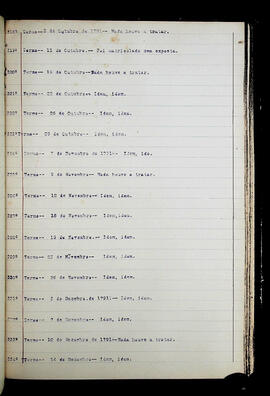 Termo-- 8 de Outubro de 1791-- Nada houve a tratar.
Termo-- 11 de Outubro.- Foi matriculado um exposto.
Termo-- 15 de Outubro--Nada houve a tratar.
Termo-- 22 de Outubro-- Idem, idem.
Termo-- 26 de Outubro-- Idem, idem.
Termo-- 29 de Outubro-- Idem, idem.
Termo-- de Novembro de 1791-- Idem, ide.
Termo-- de Novembro-- Nada houve a tratar.
Termo-- 12 de Novembro-- Idem, idem.
Termo-- 16 de Novembro-- Idem, idem.
Termo-- 19 de Novembro-- Idem, idem.
Termo-- 23 de Novembro-- Idem, idem.
Termo-- 26 de Novembro-- Idem, idem.
Termo-- de Dezembro de 1791-- Idem, idem.
Termo-- de Dezembro-- Idem, idem.
Termo-- 10 de Dezembro de 1791--Nada houve a tratar.
Termo-- 14 de Dezembro-- Idem, idem.